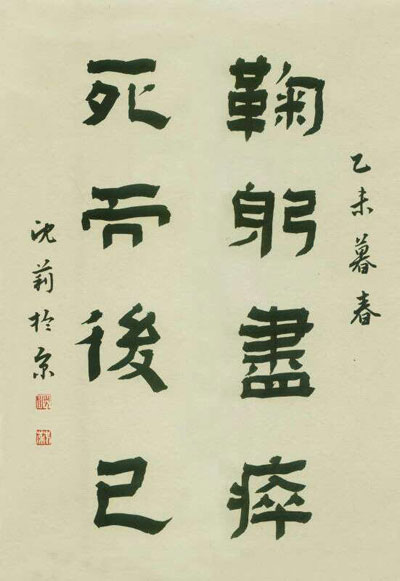 乙未暮春
鞠躬盡瘁
死而後已
沈莉於京